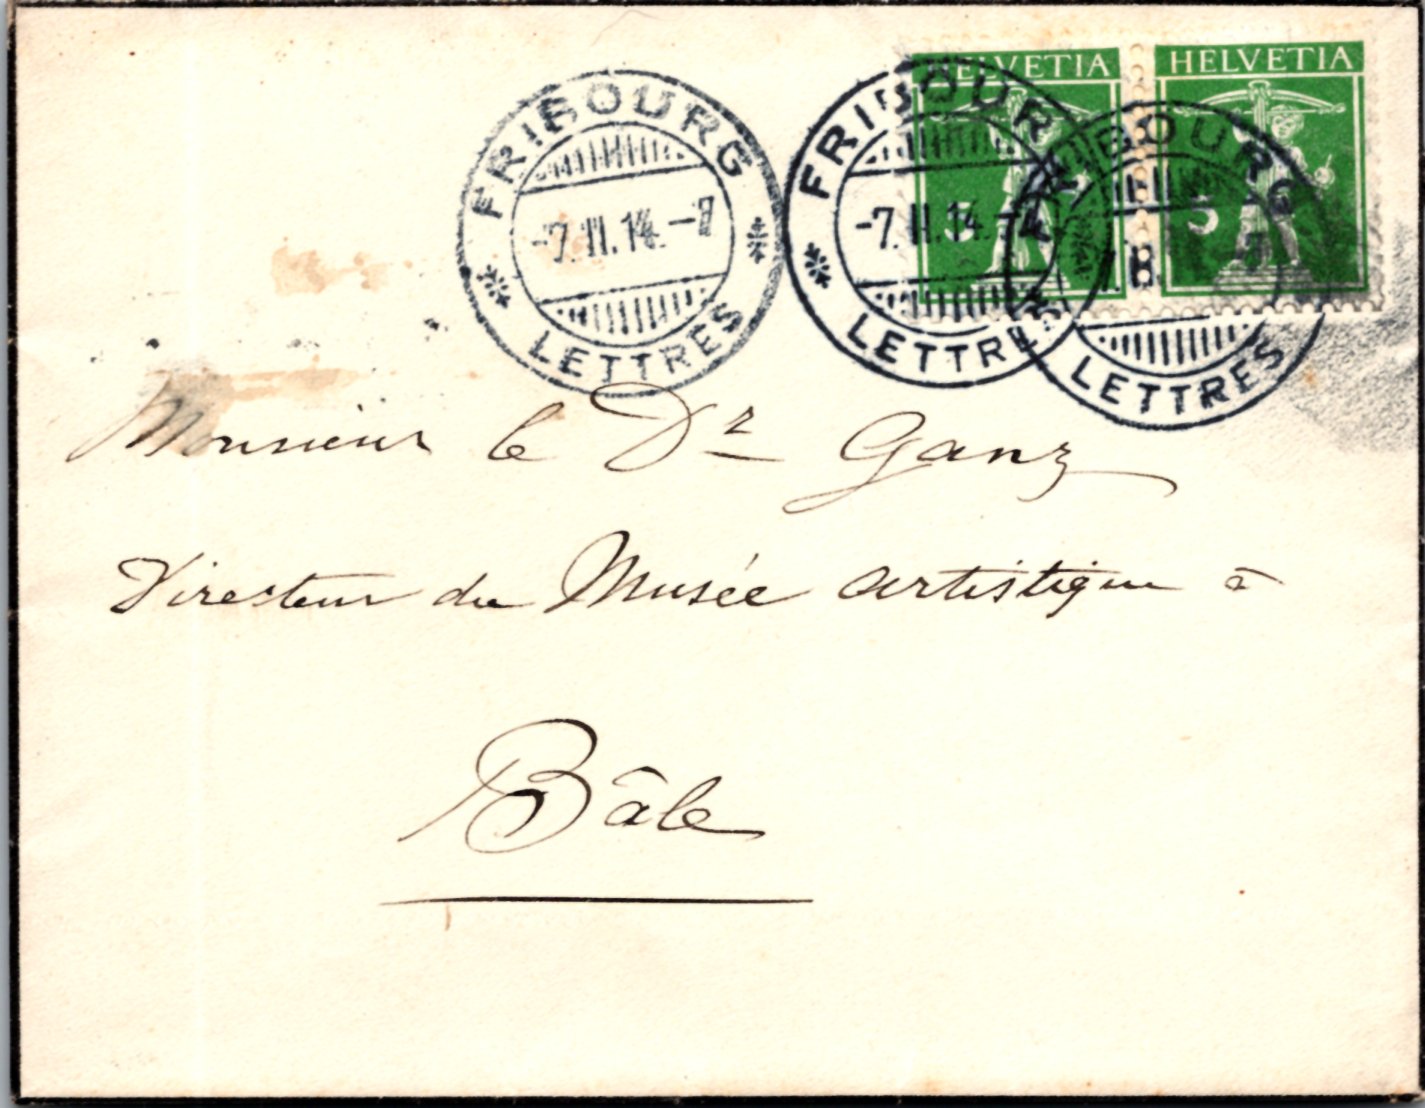 HELVETIA HELVETIA
5 5
FRIBOURG
-7.II.14.-7
LETTRES
FRIBOURG
-7.II.14.-
LETTRES
FRIBOURG
LETTRES
Monsieur le Dr Ganz
Directeur du Musée artistique à
Bâle